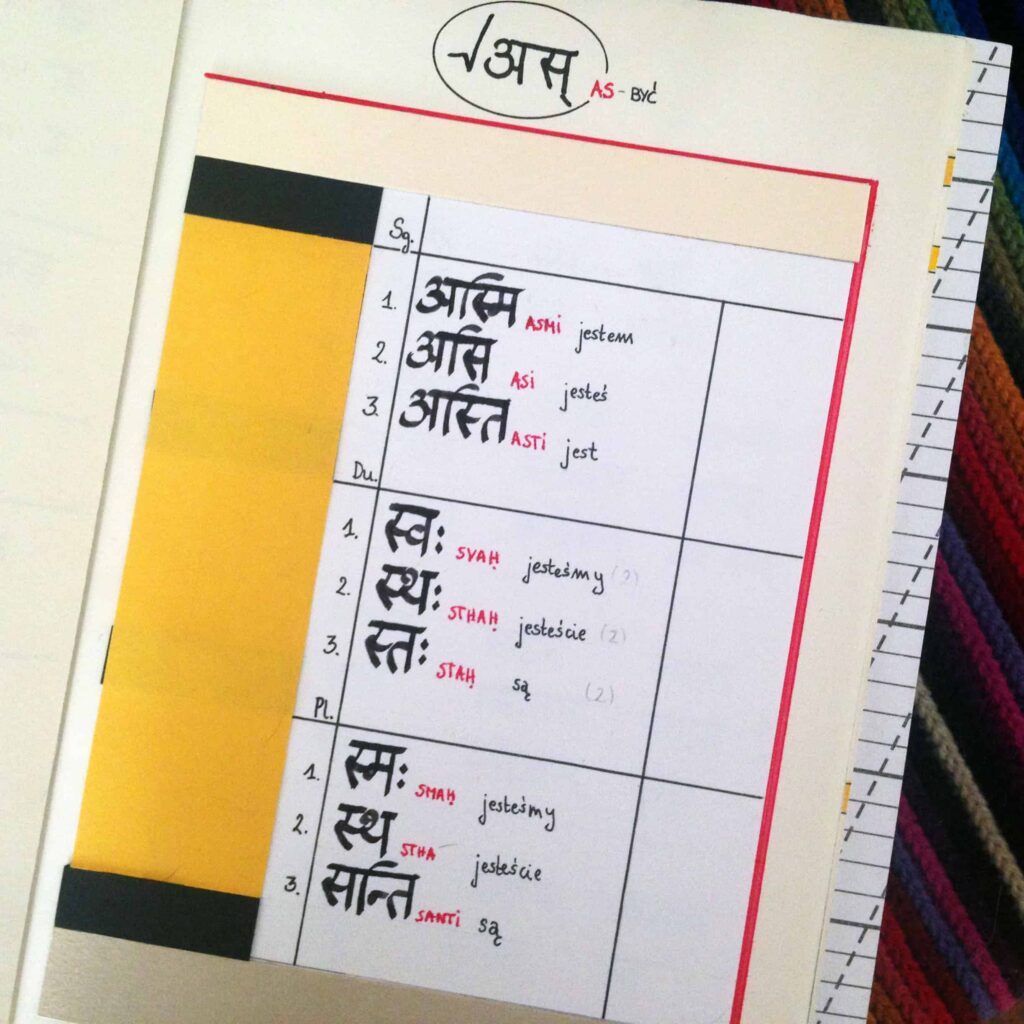 √अस् AS - BYĆ
Sg.
1. अस्मि ASMi jestem
2. असि ASi jesteś
3. अस्ति ASTi jest
Du.
1. स्वः SVAḤ jesteśmy (2)
2. स्थः STHAḤ jesteście (2)
3. स्तः STAḤ są (2)
Pl.
1. स्मः SMAḤ jesteśmy
2. स्थ STHA jesteście
3. सन्ति SANTi są